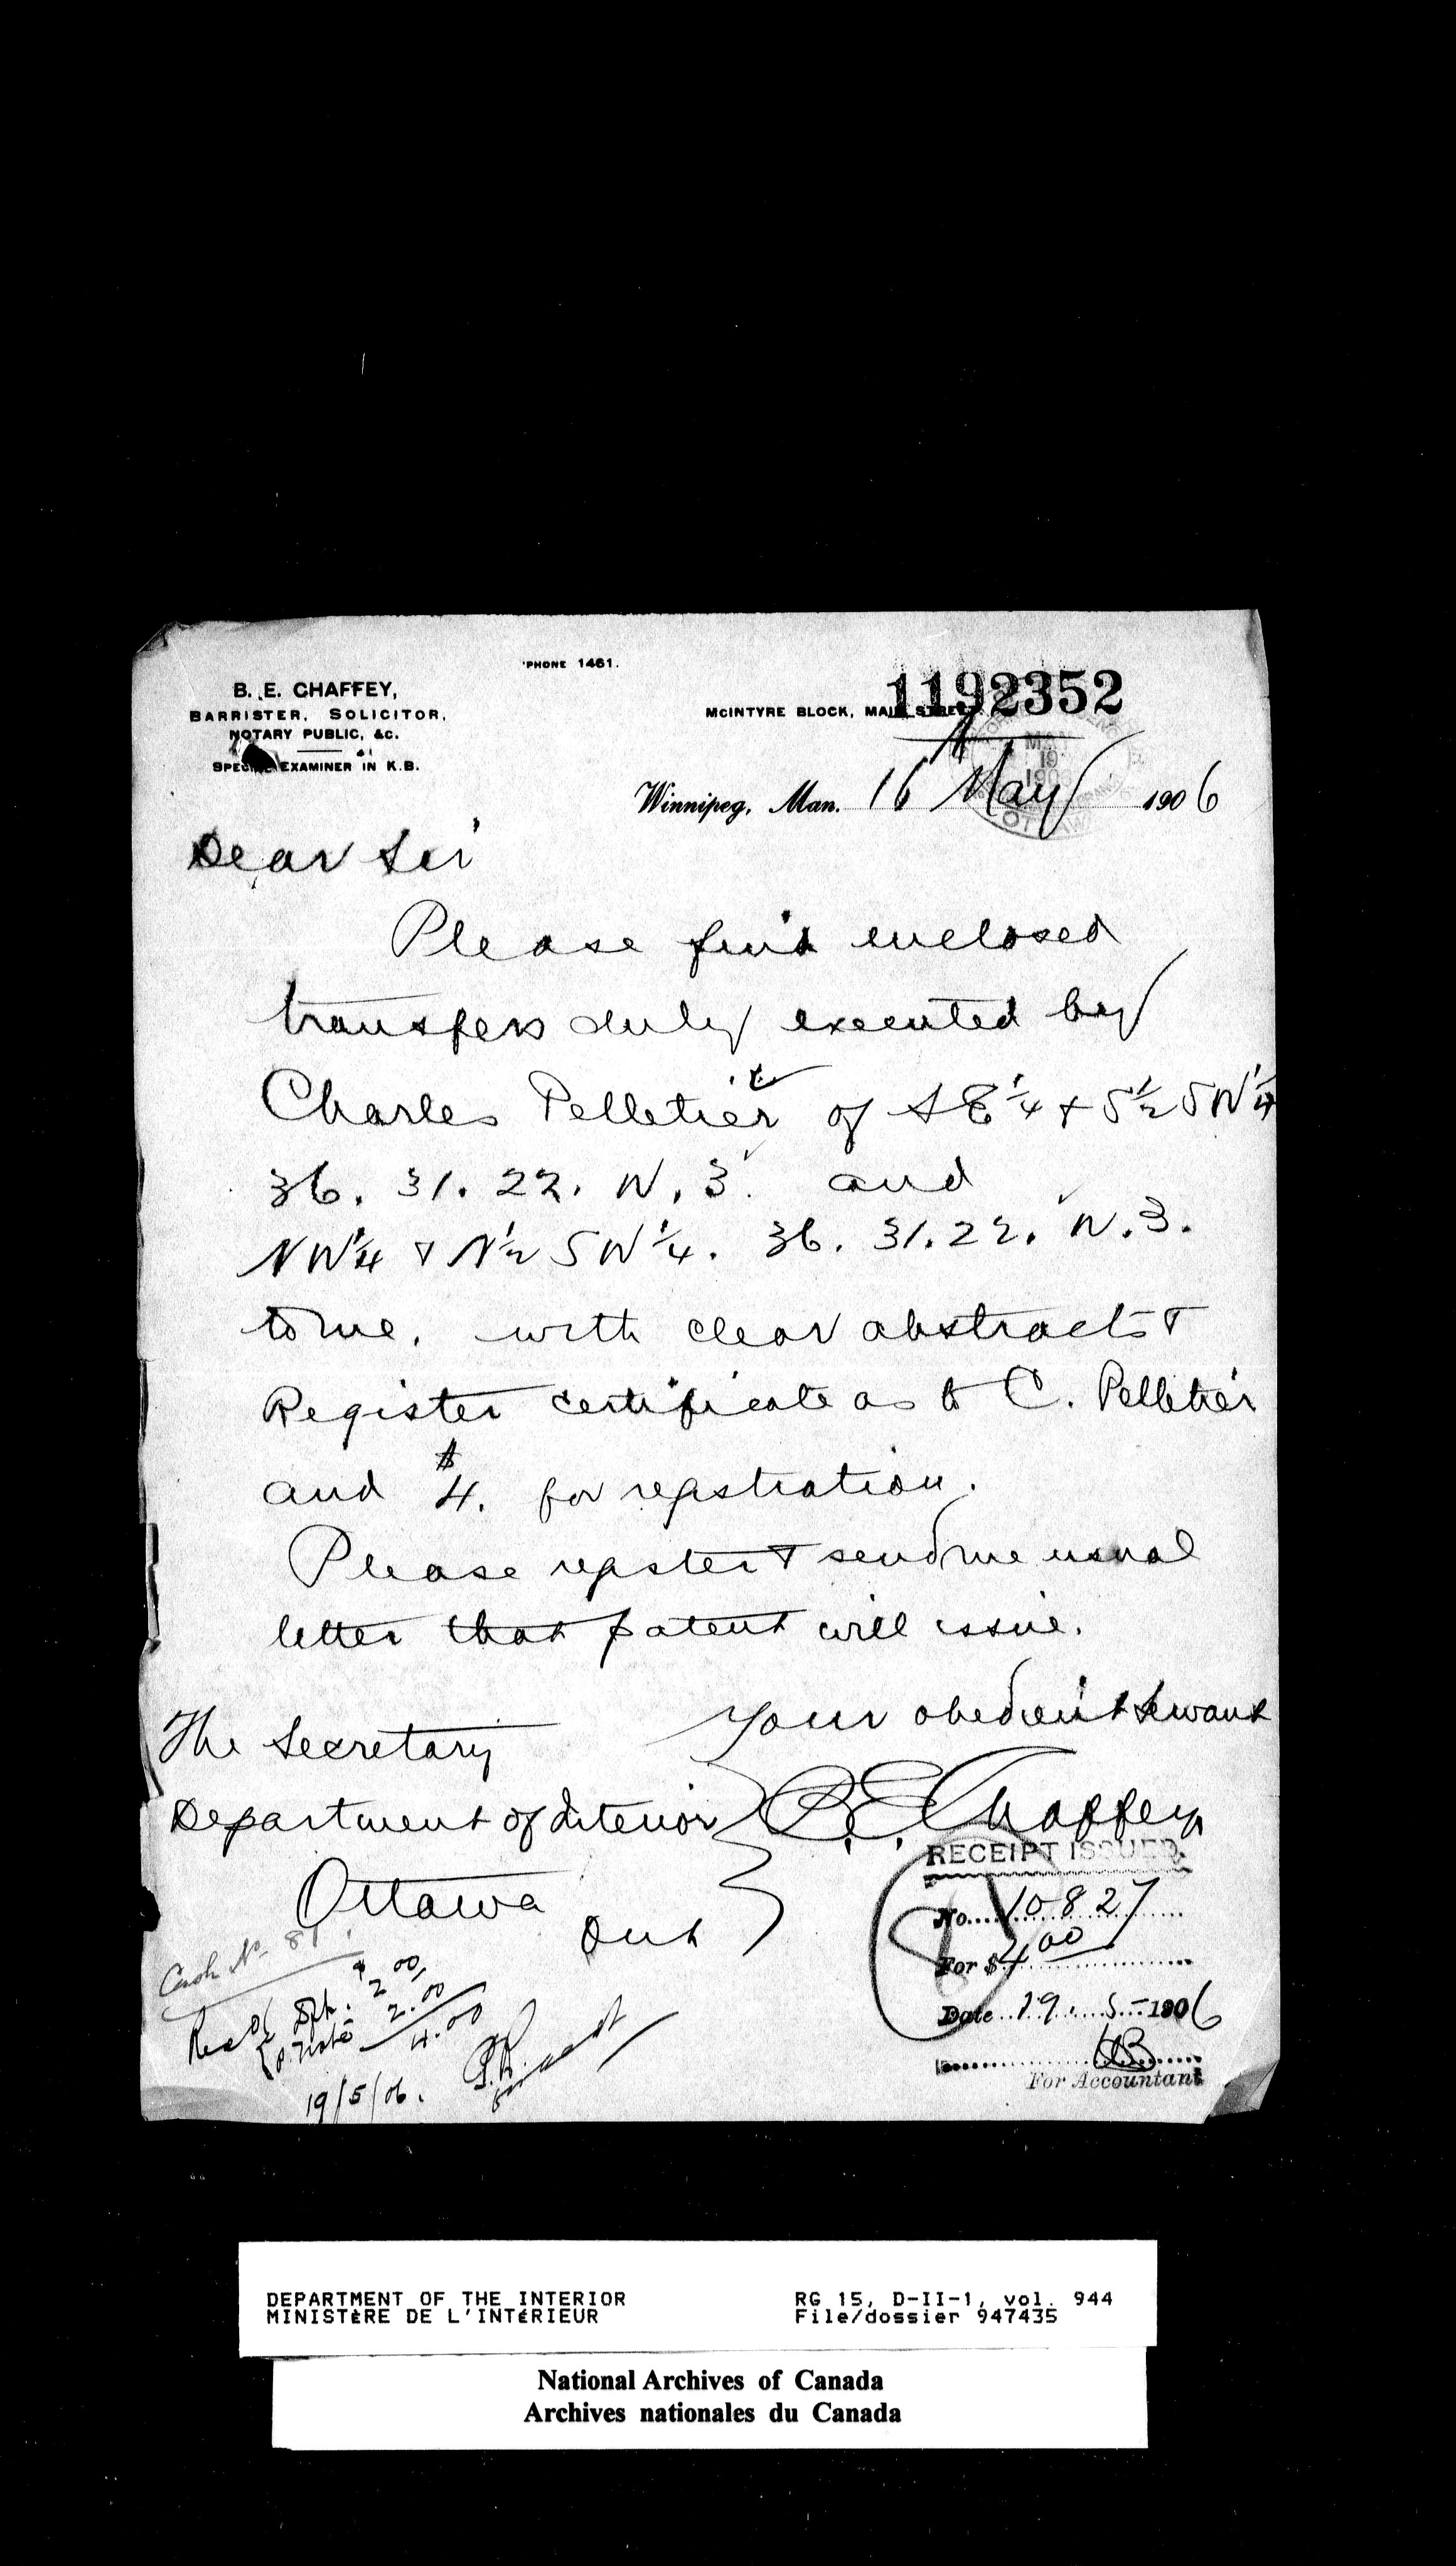 'PHONE 1461.
B. E. CHAFFEY,
BARRISTER, SOLICITOR,
NOTARY PUBLIC, &C.
SPECIAL EXAMINER IN K.B.
1192352
MCINTYRE BLOCK, MAIN STREET
MAY
19
1906
OTTAWA
Winnipeg, Man. 16 May 1906
Dear Sir
Please find enclosed
transfers duly executed by
Charles Pelletier of SE¼ & S½ SW¼
36. 31. 22. W. 3. and
NW¼ & N½ SW¼. 36. 31. 22. W. 3.
to me. with clear abstracts &
Register certificate as to C. Pelletier
and $4. for registration.
Please register & send me usual
letter that patent will issue.
Your obedient Servant
The Secretary
Department of Interior
B. E. Chaffey
Ottawa
Ont
RECEIPT ISSUED.
No. 10827
For $ 4.00
Date 19. 5-1906
For Accountant
Cash No. 81
2.00
2.00
4.00
19/5/06.
DEPARTMENT OF THE INTERIOR
MINISTÈRE DE L'INTÉRIEUR
RG 15, D-II-1, vol. 944
File/dossier 947435
National Archives of Canada
Archives nationales du Canada